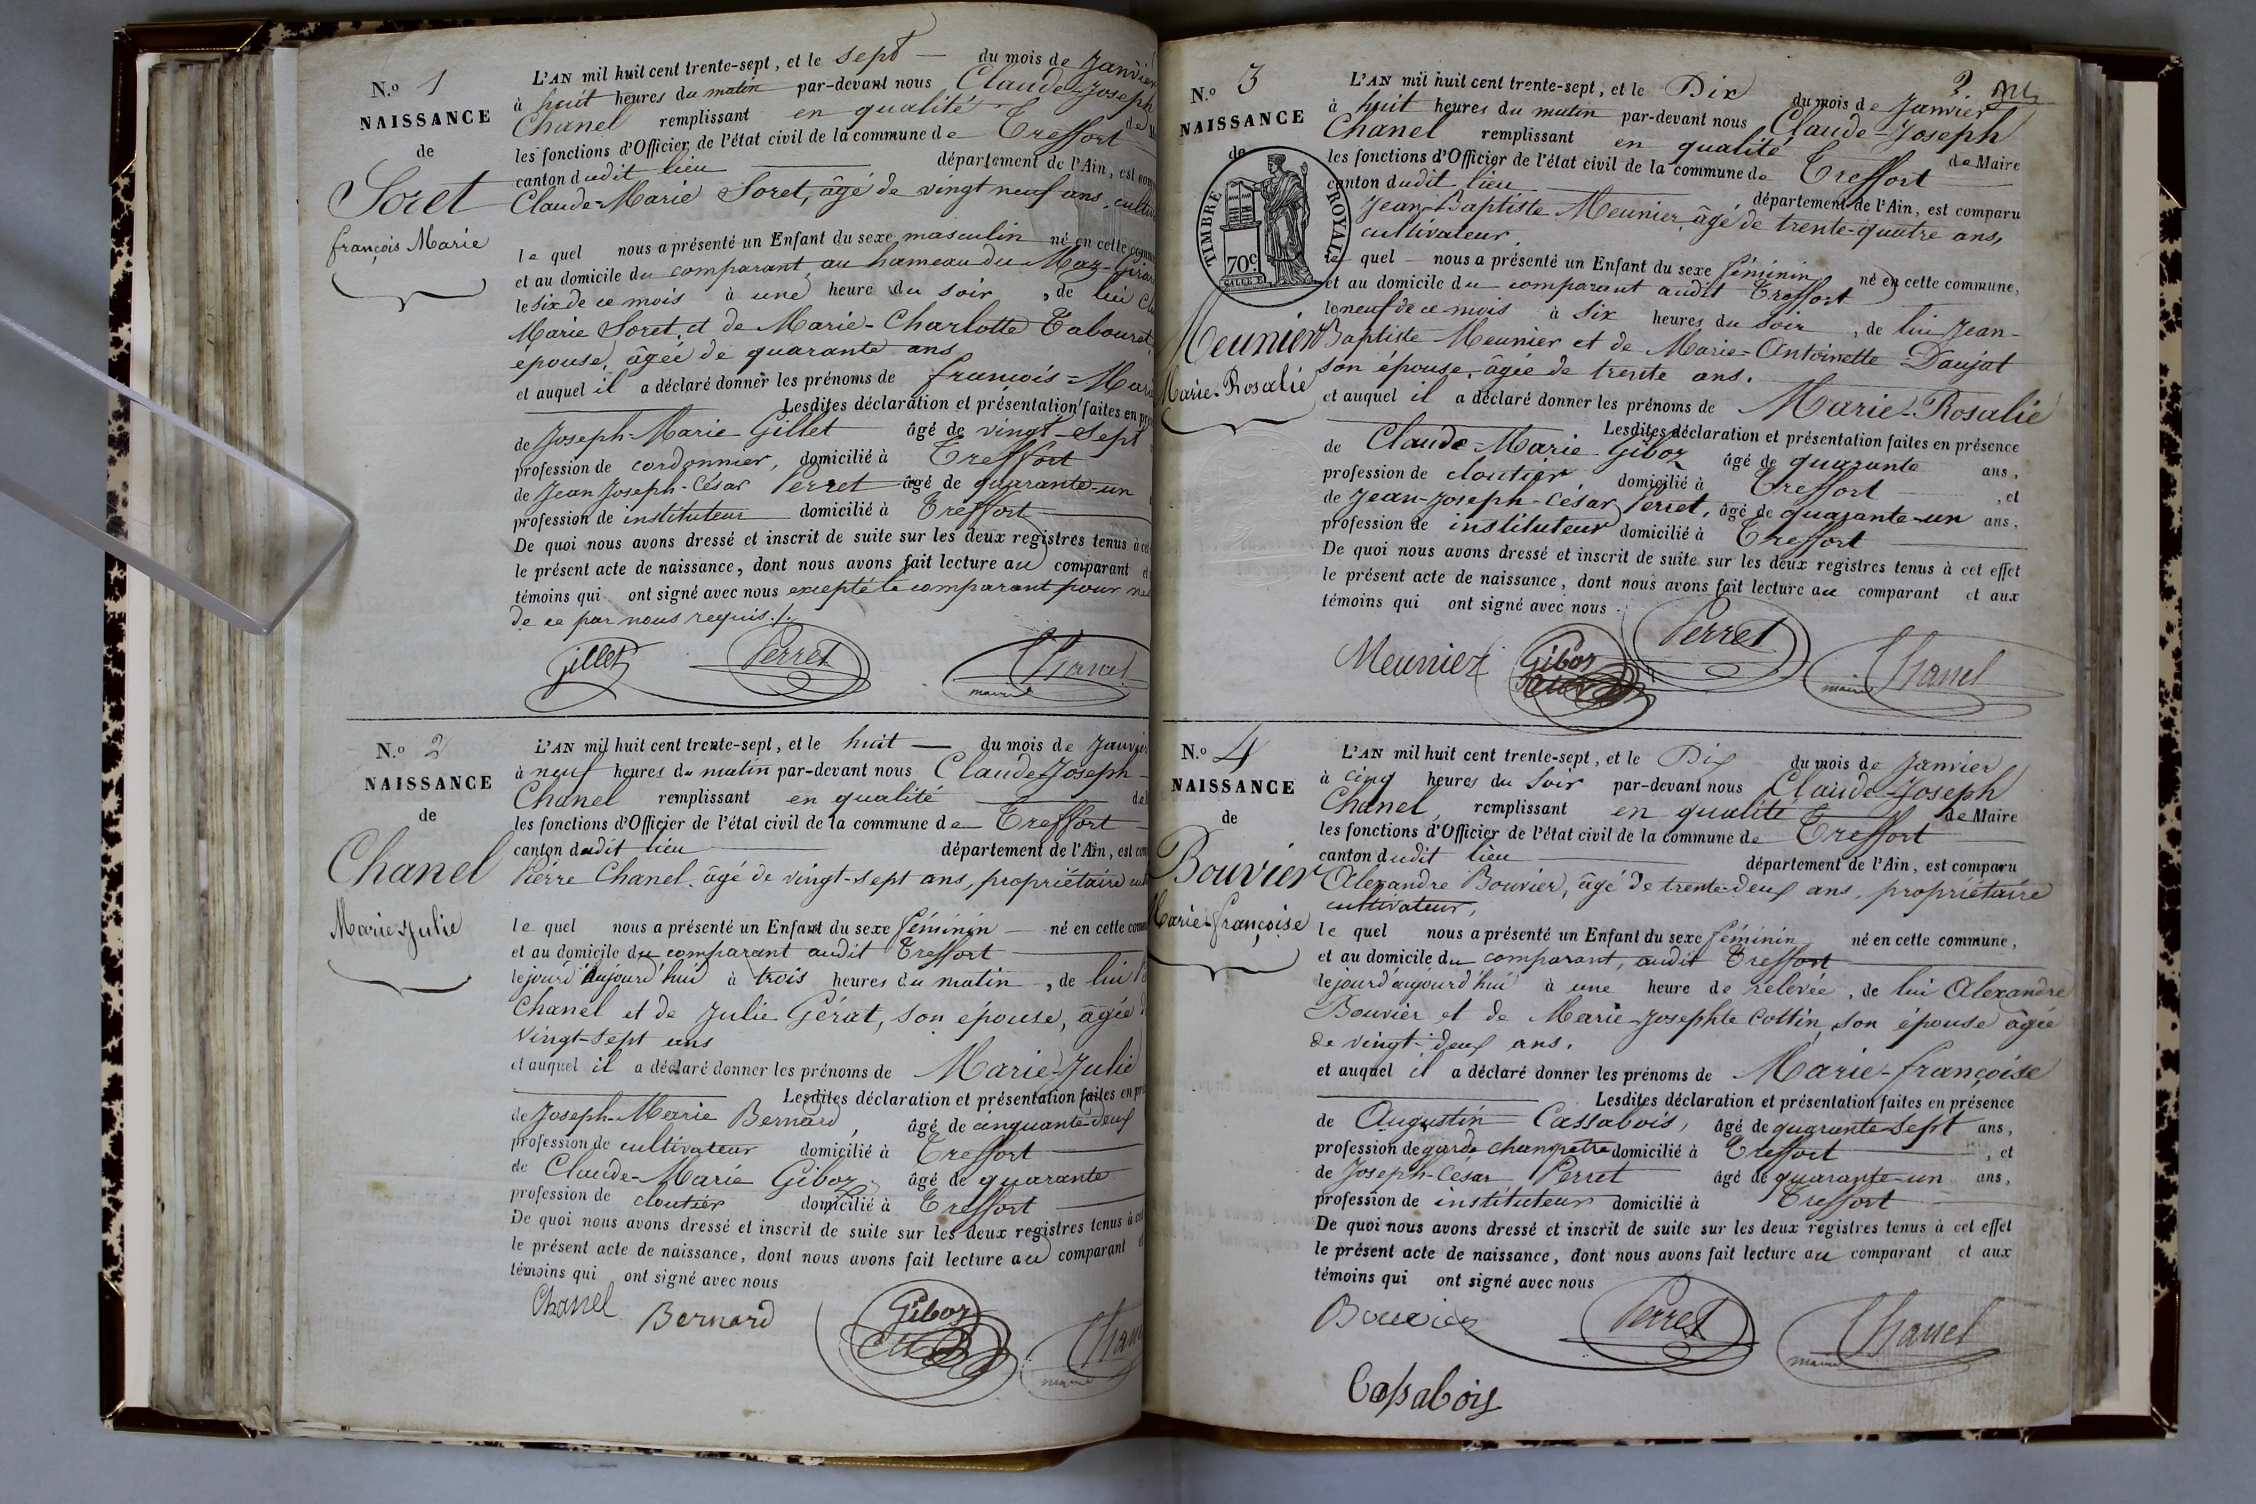 N.o 1
NAISSANCE
de
Soret
françois Marie
L'AN mil huit cent trente-sept, et le sept — du mois de Janvier
à huit heures du matin par-devant nous Claude-Joseph
Chanel remplissant en qualité de
les fonctions d'Officier de l'état civil de la commune de Treffort
canton dudit lieu département de l'Ain, est
Claude-Marie Soret, âgé de vingt neuf ans,
le quel nous a présenté un Enfant du sexe masculin né en cette
et au domicile du comparant au hameau du Maz-
le six de ce mois à une heure du soir, de lui
Marie Soret, et de Marie-Charlotte Tabouret,
épouse, âgée de quarante ans
et auquel il a déclaré donner les prénoms de françois-Marie
Lesdites déclaration et présentation faites en
de Joseph-Marie Gillet âgé de vingt-sept
profession de cordonnier, domicilié à Treffort
de Jean Joseph-César Perret âgé de quarante-un
profession de instituteur domicilié à Treffort
De quoi nous avons dressé et inscrit de suite sur les deux registres tenus à
le présent acte de naissance, dont nous avons fait lecture au comparant et
témoins qui ont signé avec nous excepté le comparant pour
de ce par nous requis./.
Gillet Perret Chanel
maire
N.o 2
NAISSANCE
de
Chanel
Marie-Julie
L'AN mil huit cent trente-sept, et le huit — du mois de Janvier
à neuf heures du matin par-devant nous Claude-Joseph-
Chanel remplissant en qualité
les fonctions d'Officier de l'état civil de la commune de Treffort
canton dudit lieu département de l'Ain, est
Pierre Chanel, âgé de vingt-sept ans, propriétaire
le quel nous a présenté un Enfant du sexe féminin — né en cette
et au domicile du comparant audit Treffort
le jour d'aujourd'hui à trois heures du matin, de lui
Chanel et de Julie Gérat, son épouse, âgée
vingt-sept ans
et auquel il a déclaré donner les prénoms de Marie-Julie
Lesdites déclaration et présentation faites en
de Joseph-Marie Bernard, âgé de cinquante-deux
profession de cultivateur domicilié à Treffort
de Claude-Marie Giboz âgé de quarante
profession de cloutier domicilié à Treffort
De quoi nous avons dressé et inscrit de suite sur les deux registres tenus à
le présent acte de naissance, dont nous avons fait lecture au comparant
témoins qui ont signé avec nous
Chanel Bernard Giboz Chanel
maire
N.o 3
NAISSANCE
de
TIMBRE ROYAL
70c
Meunier
Marie-Rosalie
L'AN mil huit cent trente-sept, et le Dix du mois de Janvier
à huit heures du matin par-devant nous Claude-Joseph
Chanel remplissant en qualité de Maire
les fonctions d'Officier de l'état civil de la commune de Treffort
canton dudit lieu département de l'Ain, est comparu
Jean-Baptiste Meunier, âgé de trente-quatre ans,
cultivateur,
le quel nous a présenté un Enfant du sexe féminin né en cette commune,
et au domicile du comparant audit Treffort
le neuf de ce mois à six heures du soir, de lui Jean-
Baptiste Meunier et de Marie-Antoinette Daujat
son épouse, âgée de trente ans.
et auquel il a déclaré donner les prénoms de Marie-Rosalie
Lesdites déclaration et présentation faites en présence
de Claude-Marie Giboz âgé de quarante ans,
profession de cloutier domicilié à Treffort, et
de Jean-Joseph-César Perret, âgé de quarante-un ans,
profession de instituteur domicilié à Treffort
De quoi nous avons dressé et inscrit de suite sur les deux registres tenus à cet effet
le présent acte de naissance, dont nous avons fait lecture au comparant et aux
témoins qui ont signé avec nous.
Meunier Giboz Perret Chanel
maire
N.o 4
NAISSANCE
de
Bouvier
Marie-françoise
L'AN mil huit cent trente-sept, et le Dix du mois de Janvier
à cinq heures du soir par-devant nous Claude-Joseph
Chanel, remplissant en qualité de Maire
les fonctions d'Officier de l'état civil de la commune de Treffort
canton dudit lieu département de l'Ain, est comparu
Alexandre Bouvier, âgé de trente-deux ans, propriétaire
cultivateur,
le quel nous a présenté un Enfant du sexe féminin né en cette commune,
et au domicile du comparant, audit Treffort
le jour d'aujourd'hui à une heure de relevée, de lui Alexandre
Bouvier et de Marie-Josephte Cottin, son épouse âgée
de vingt-deux ans.
et auquel il a déclaré donner les prénoms de Marie-françoise
Lesdites déclaration et présentation faites en présence
de Augustin Cassabois, âgé de quarante-sept ans,
profession de garde champetre domicilié à Treffort, et
de Joseph-César Perret âgé de quarante-un ans,
profession de instituteur domicilié à Treffort
De quoi nous avons dressé et inscrit de suite sur les deux registres tenus à cet effet
le présent acte de naissance, dont nous avons fait lecture au comparant et aux
témoins qui ont signé avec nous
Bouvier Perret Chanel
maire
Cassabois